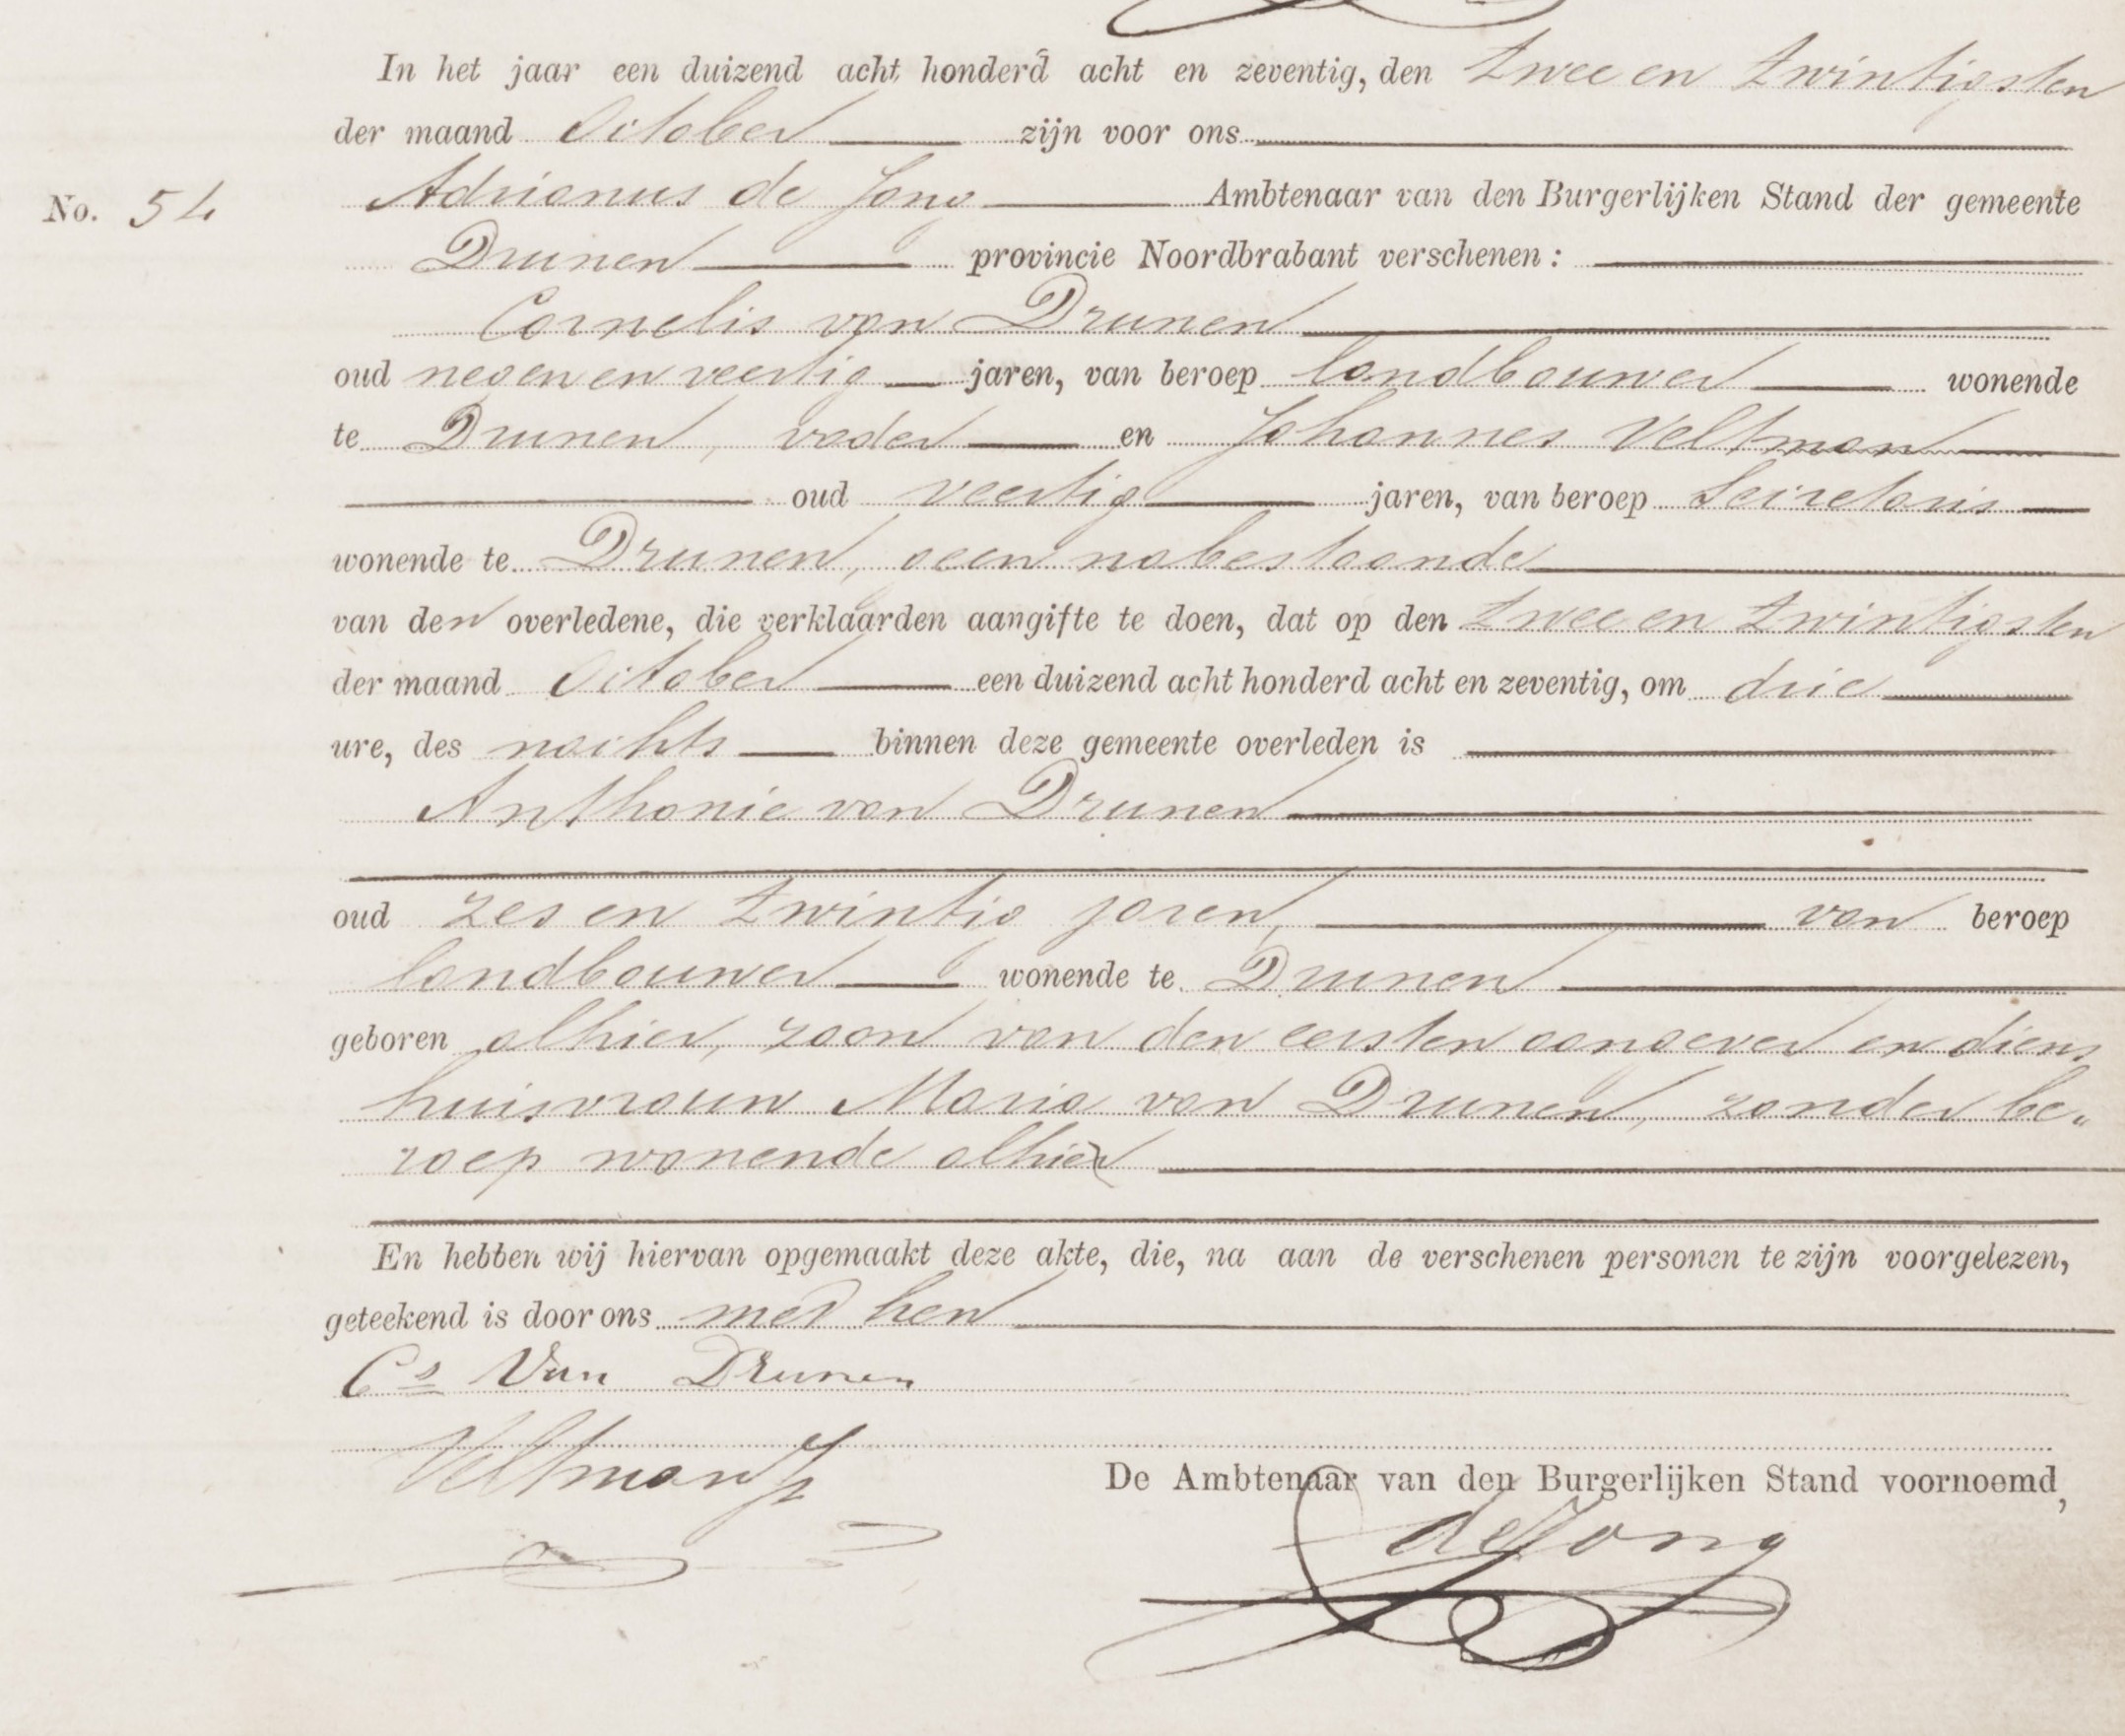 In het jaar een duizend acht honderd acht en zeventig, den twee en twintigsten
der maand October zijn voor ons
Adrianus de Jong Ambtenaar van den Burgerlijken Stand der gemeente
No. 54
Drunen provincie Noordbrabant verschenen :
Cornelis van Drunen
oud negen en veertig jaren, van beroep landbouwer wonende
te Drunen, vader en Johannes Veltman
oud veertig jaren, van beroep Secretaris
wonende te Drunen, geen nabestaande
van den overledene, die verklaarden aangifte te doen, dat op den twee en twintigsten
der maand October een duizend acht honderd acht en zeventig, om drie
ure, des nachts binnen deze gemeente overleden is
Anthonie van Drunen
oud zes en twintig jaren, van beroep
landbouwer wonende te Drunen
geboren alhier, zoon van den eersten aangever en diens
huisvrouw Maria van Drunen, zonder be„
roep wonende alhier
En hebben wij hiervan opgemaakt deze akte, die, na aan de verschenen personen te zijn voorgelezen,
geteekend is door ons met hen
Cs Van Drunen
Veltman
De Ambtenaar van den Burgerlijken Stand voornoemd,
de Jong